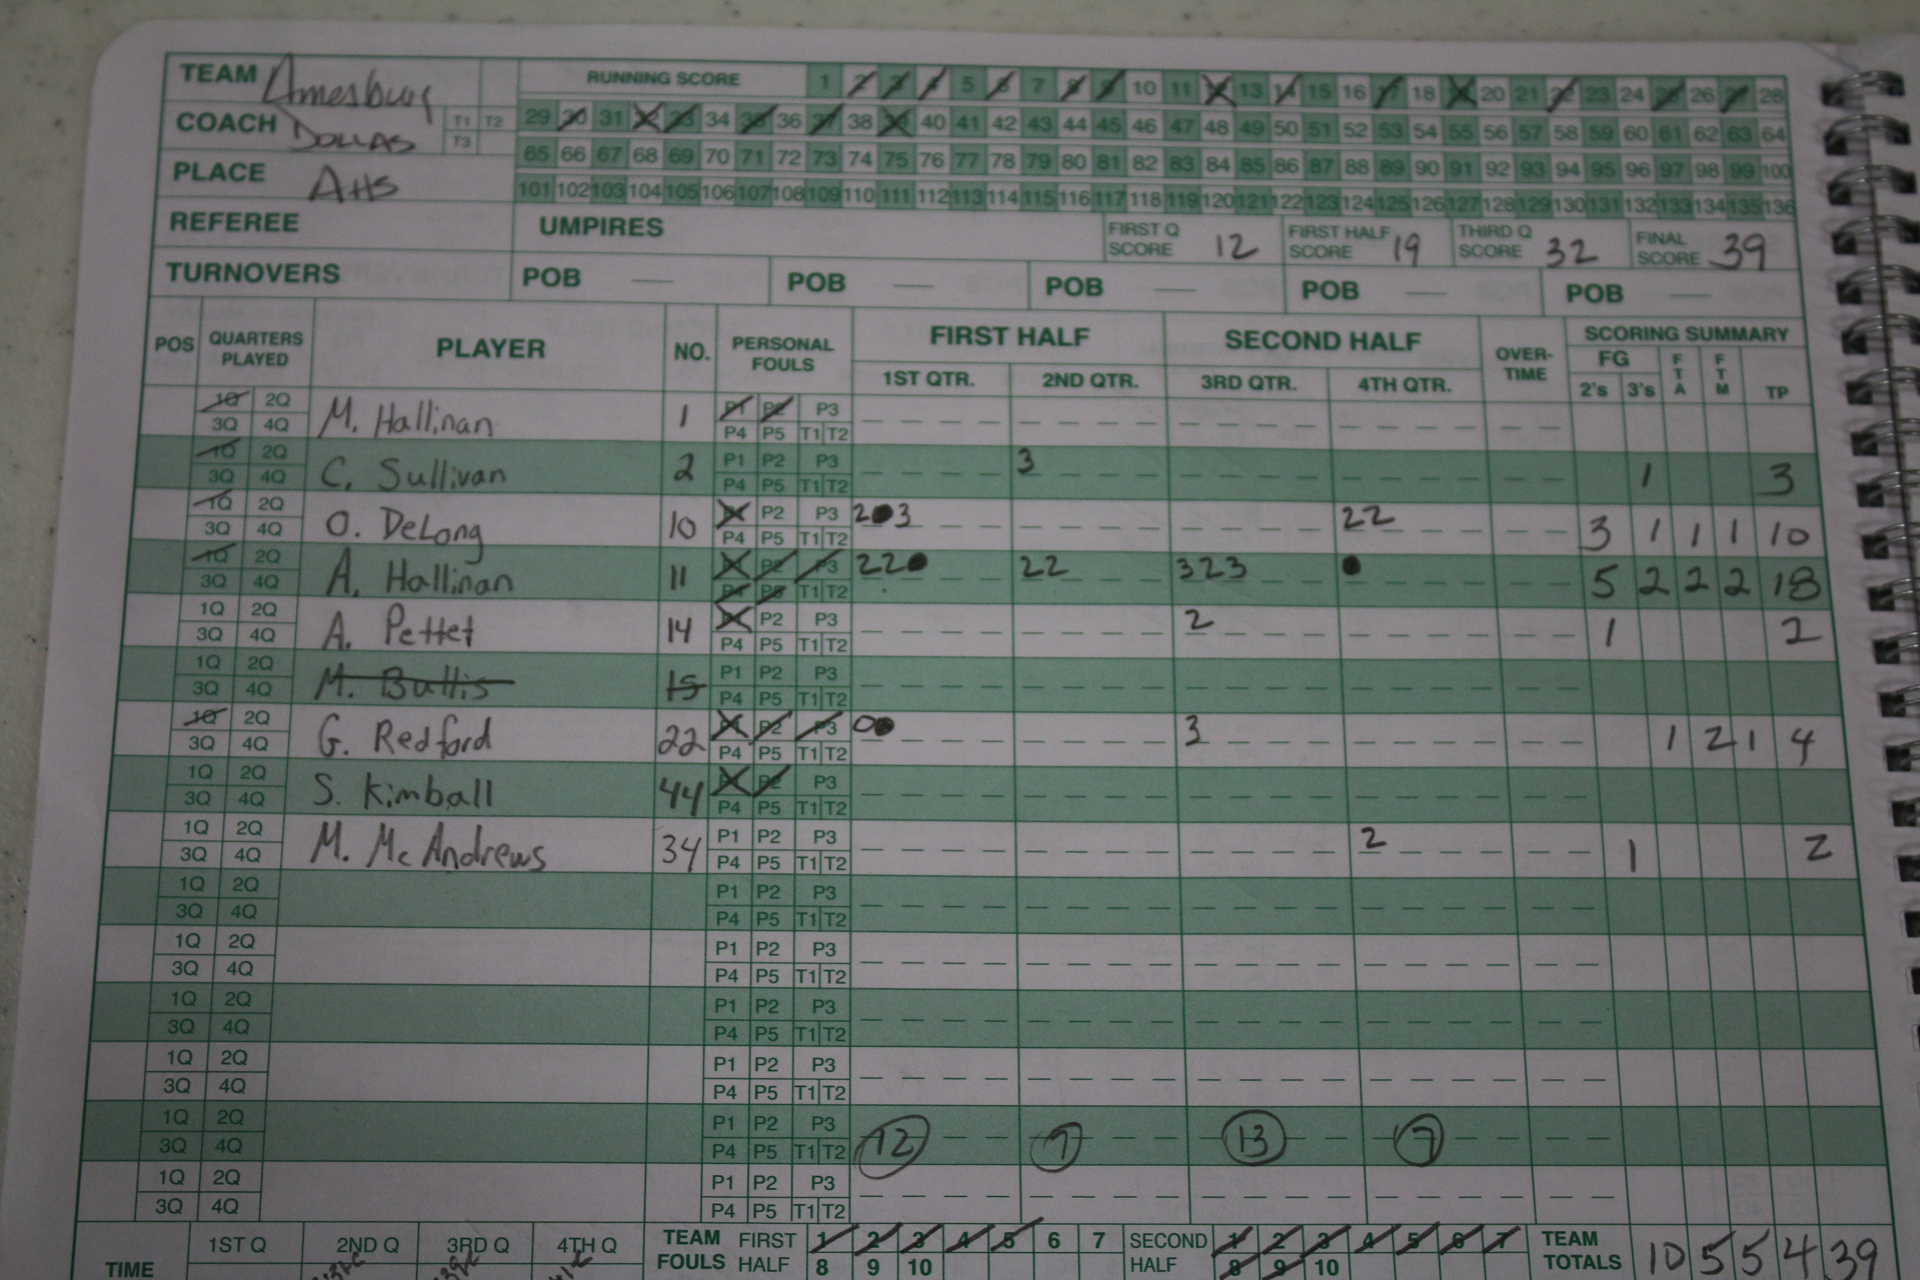 TEAM Amesbury RUNNING SCORE 1 2 3 4 5 6 7 8 9 10 11 12 13 14 15 16 17 18 19 20 21 22 23 24 25 26 27 28
COACH DOLLAS T1 T2 T3 29 30 31 32 33 34 35 36 37 38 39 40 41 42 43 44 45 46 47 48 49 50 51 52 53 54 55 56 57 58 59 60 61 62 63 64
65 66 67 68 69 70 71 72 73 74 75 76 77 78 79 80 81 82 83 84 85 86 87 88 89 90 91 92 93 94 95 96 97 98 99 100
PLACE AHS 101 102 103 104 105 106 107 108 109 110 111 112 113 114 115 116 117 118 119 120 121 122 123 124 125 126 127 128 129 130 131 132 133 134 135 136
REFEREE UMPIRES FIRST Q SCORE 12 FIRST HALF SCORE 19 THIRD Q SCORE 32 FINAL SCORE 39
TURNOVERS POB — POB — POB — POB — POB —
POS QUARTERS PLAYED PLAYER NO. PERSONAL FOULS FIRST HALF SECOND HALF OVER-TIME SCORING SUMMARY
1ST QTR. 2ND QTR. 3RD QTR. 4TH QTR. FG 2's 3's FTA FTM TP
1Q 2Q M. Hallinan 1 P1 P2 P3
3Q 4Q P4 P5 T1 T2
1Q 2Q C. Sullivan 2 P1 P2 P3 3 1 3
3Q 4Q P4 P5 T1 T2
1Q 2Q O. DeLong 10 P1 P2 P3 2●3 22 3 1 1 1 10
3Q 4Q P4 P5 T1 T2
1Q 2Q A. Hallinan 11 P1 P2 P3 22● 22 323 ● 5 2 2 2 18
3Q 4Q P4 P5 T1 T2
1Q 2Q A. Pettet 14 P1 P2 P3 2 1 2
3Q 4Q P4 P5 T1 T2
1Q 2Q M. Buttis 15 P1 P2 P3
3Q 4Q P4 P5 T1 T2
1Q 2Q G. Redford 22 P1 P2 P3 0● 3 1 2 1 4
3Q 4Q P4 P5 T1 T2
1Q 2Q S. Kimball 44 P1 P2 P3
3Q 4Q P4 P5 T1 T2
1Q 2Q M. McAndrews 34 P1 P2 P3 2 1 2
3Q 4Q P4 P5 T1 T2
1Q 2Q P1 P2 P3
3Q 4Q P4 P5 T1 T2
1Q 2Q P1 P2 P3
3Q 4Q P4 P5 T1 T2
1Q 2Q P1 P2 P3
3Q 4Q P4 P5 T1 T2
1Q 2Q P1 P2 P3
3Q 4Q P4 P5 T1 T2
1Q 2Q P1 P2 P3
3Q 4Q P4 P5 T1 T2 12 7 13 7
1Q 2Q P1 P2 P3
3Q 4Q P4 P5 T1 T2
TIME 1ST Q 2ND Q 3RD Q 4TH Q TEAM FOULS FIRST HALF 1 2 3 4 5 6 7 SECOND HALF 1 2 3 4 5 6 7 TEAM TOTALS 10 5 5 4 39
8 9 10 8 9 10